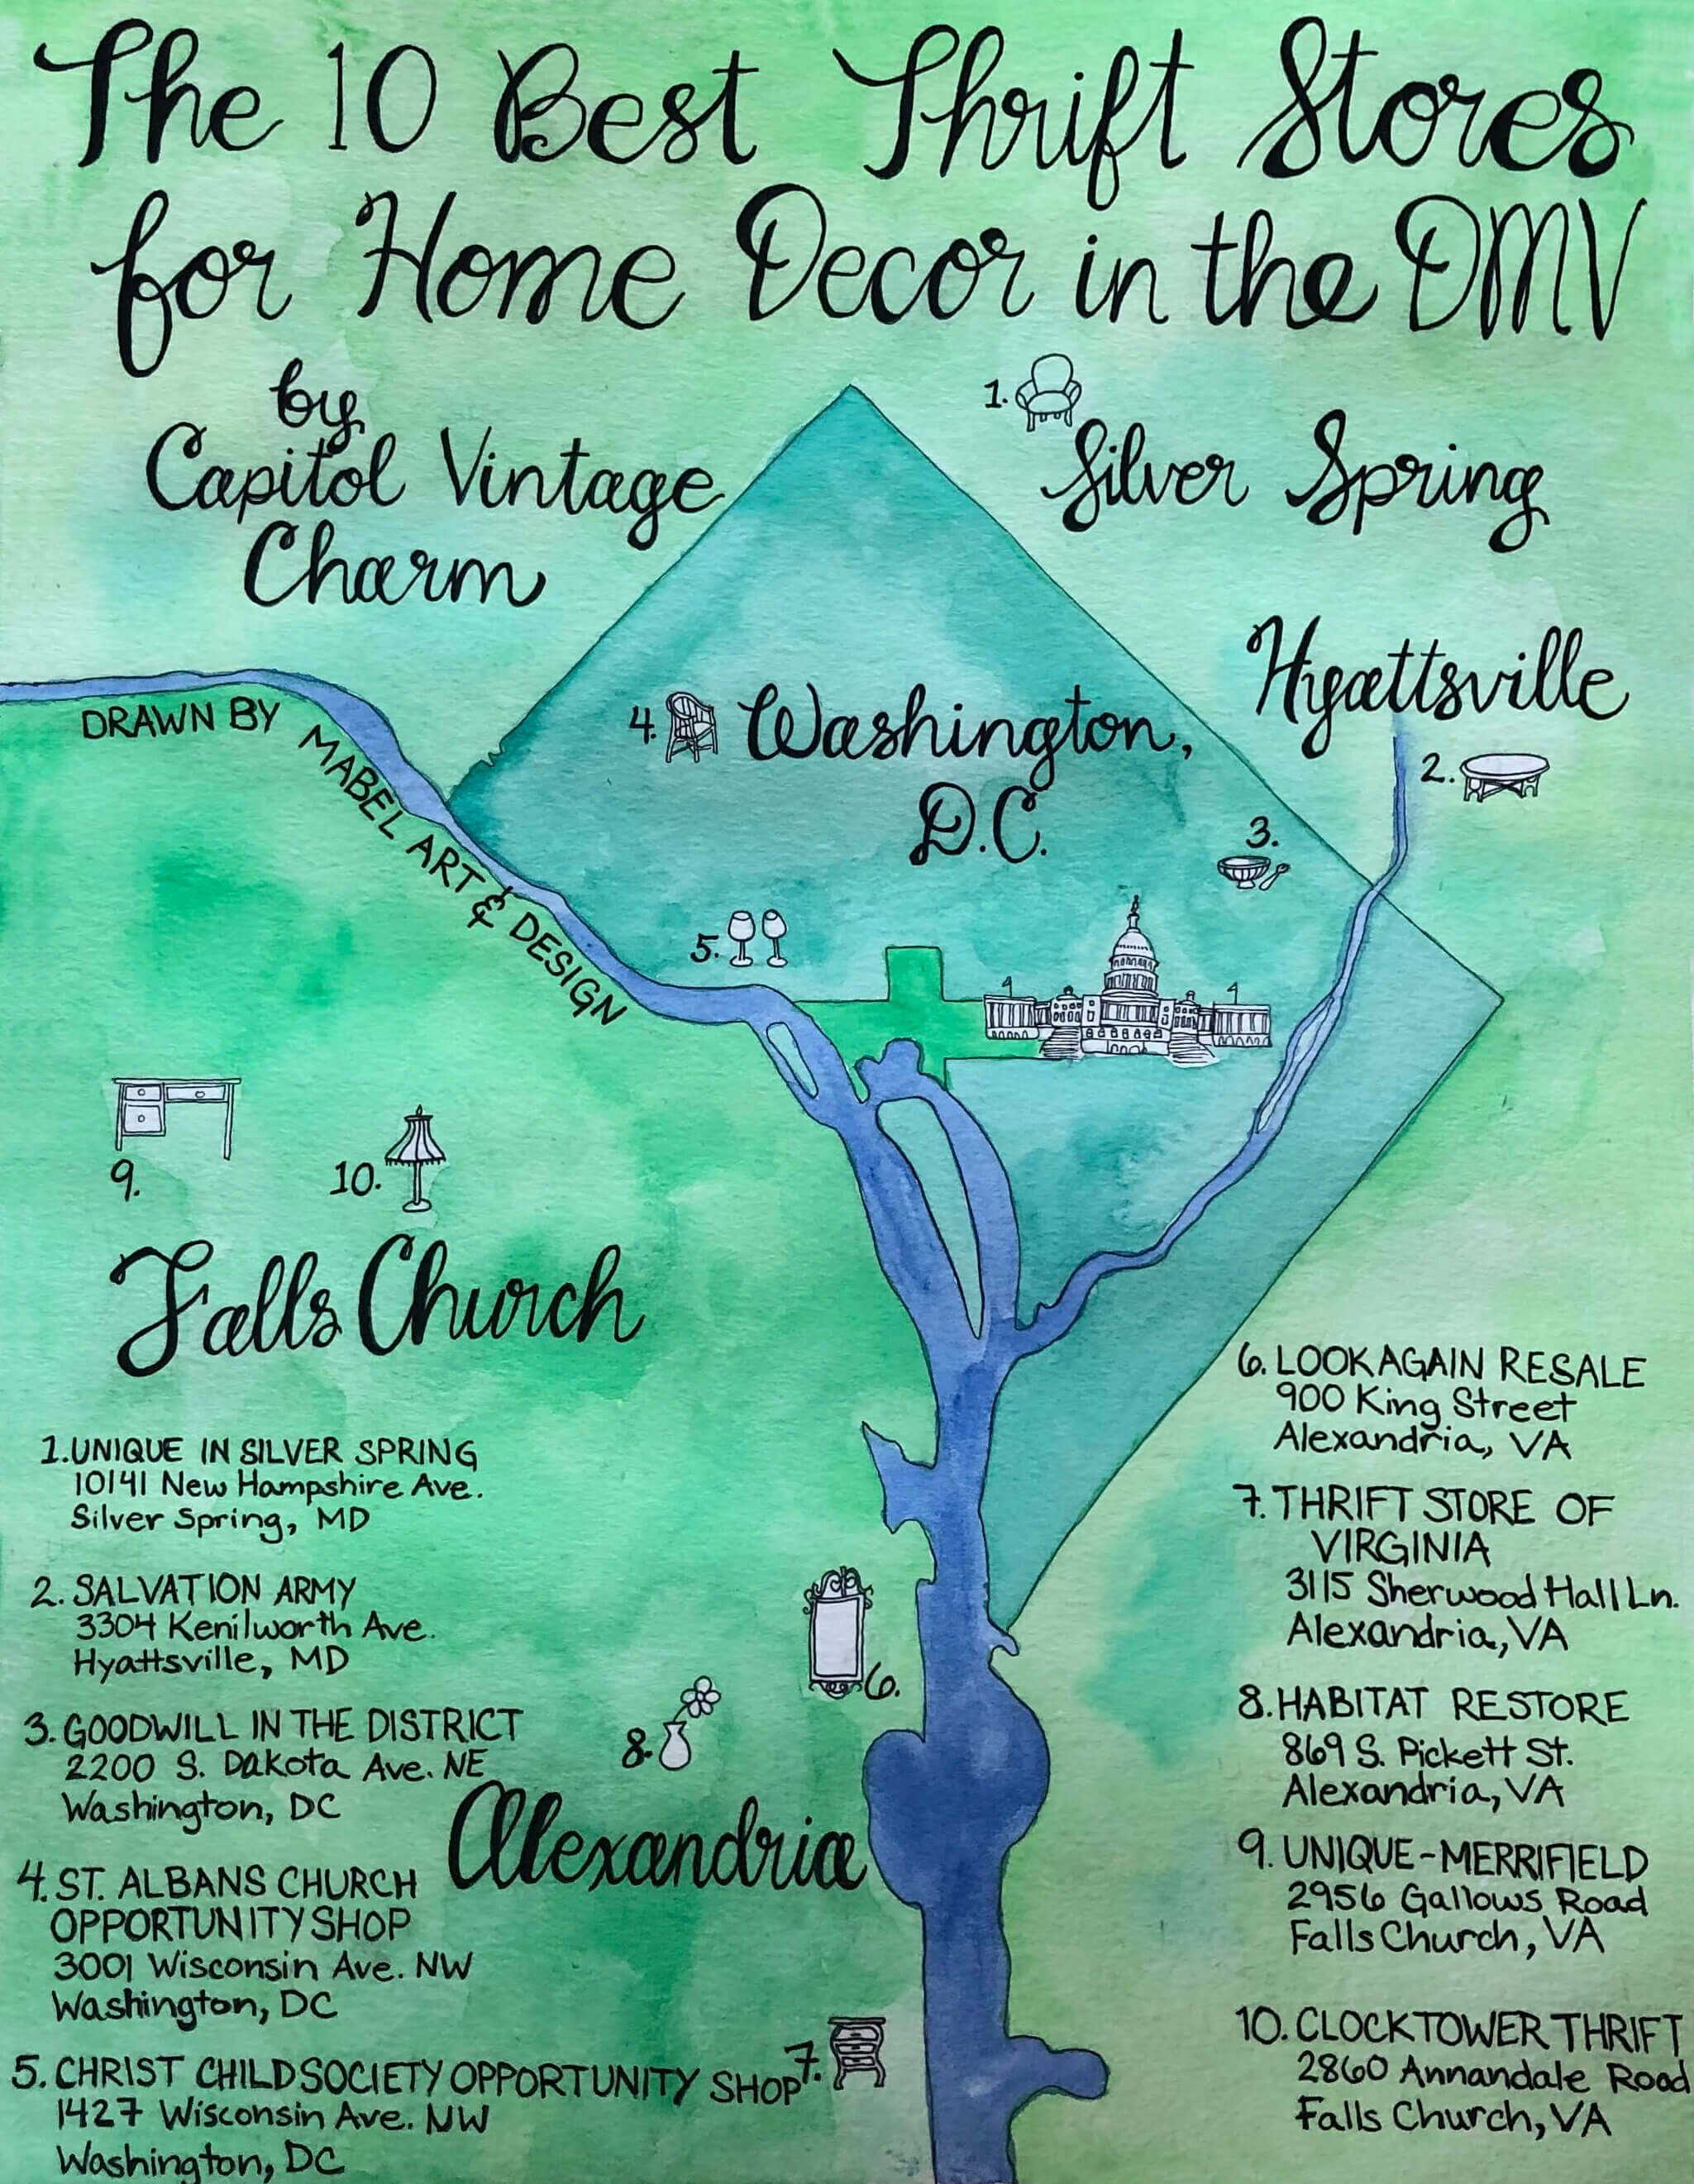 The 10 Best Thrift Stores
for Home Decor in the DMV
by
Capitol Vintage
Charm
1.
Silver Spring
Hyattsville
2.
DRAWN BY MABEL ART & DESIGN
4.
Washington,
D.C.
3.
5.
9.
10.
Falls Church
6.
8.
Alexandria
7.
1. UNIQUE IN SILVER SPRING
10141 New Hampshire Ave.
Silver Spring, MD
2. SALVATION ARMY
3304 Kenilworth Ave.
Hyattsville, MD
3. GOODWILL IN THE DISTRICT
2200 S. Dakota Ave. NE
Washington, DC
4. ST. ALBANS CHURCH
OPPORTUNITY SHOP
3001 Wisconsin Ave. NW
Washington, DC
5. CHRIST CHILD SOCIETY OPPORTUNITY SHOP
1427 Wisconsin Ave. NW
Washington, DC
6. LOOK AGAIN RESALE
900 King Street
Alexandria, VA
7. THRIFT STORE OF
VIRGINIA
3115 Sherwood Hall Ln.
Alexandria, VA
8. HABITAT RESTORE
869 S. Pickett St.
Alexandria, VA
9. UNIQUE-MERRIFIELD
2956 Gallows Road
Falls Church, VA
10. CLOCKTOWER THRIFT
2860 Annandale Road
Falls Church, VA